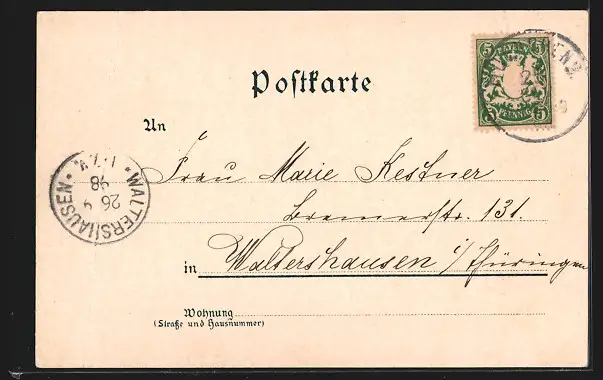 Postkarte
5 BAYERN 5
PFENNIG 5
An
Frau Marie Kestner
Bremerstr. 131.
in Waltershausen i/Thüringen
WALTERSHAUSEN
26 4
98
Wohnung
(Straße und Hausnummer)